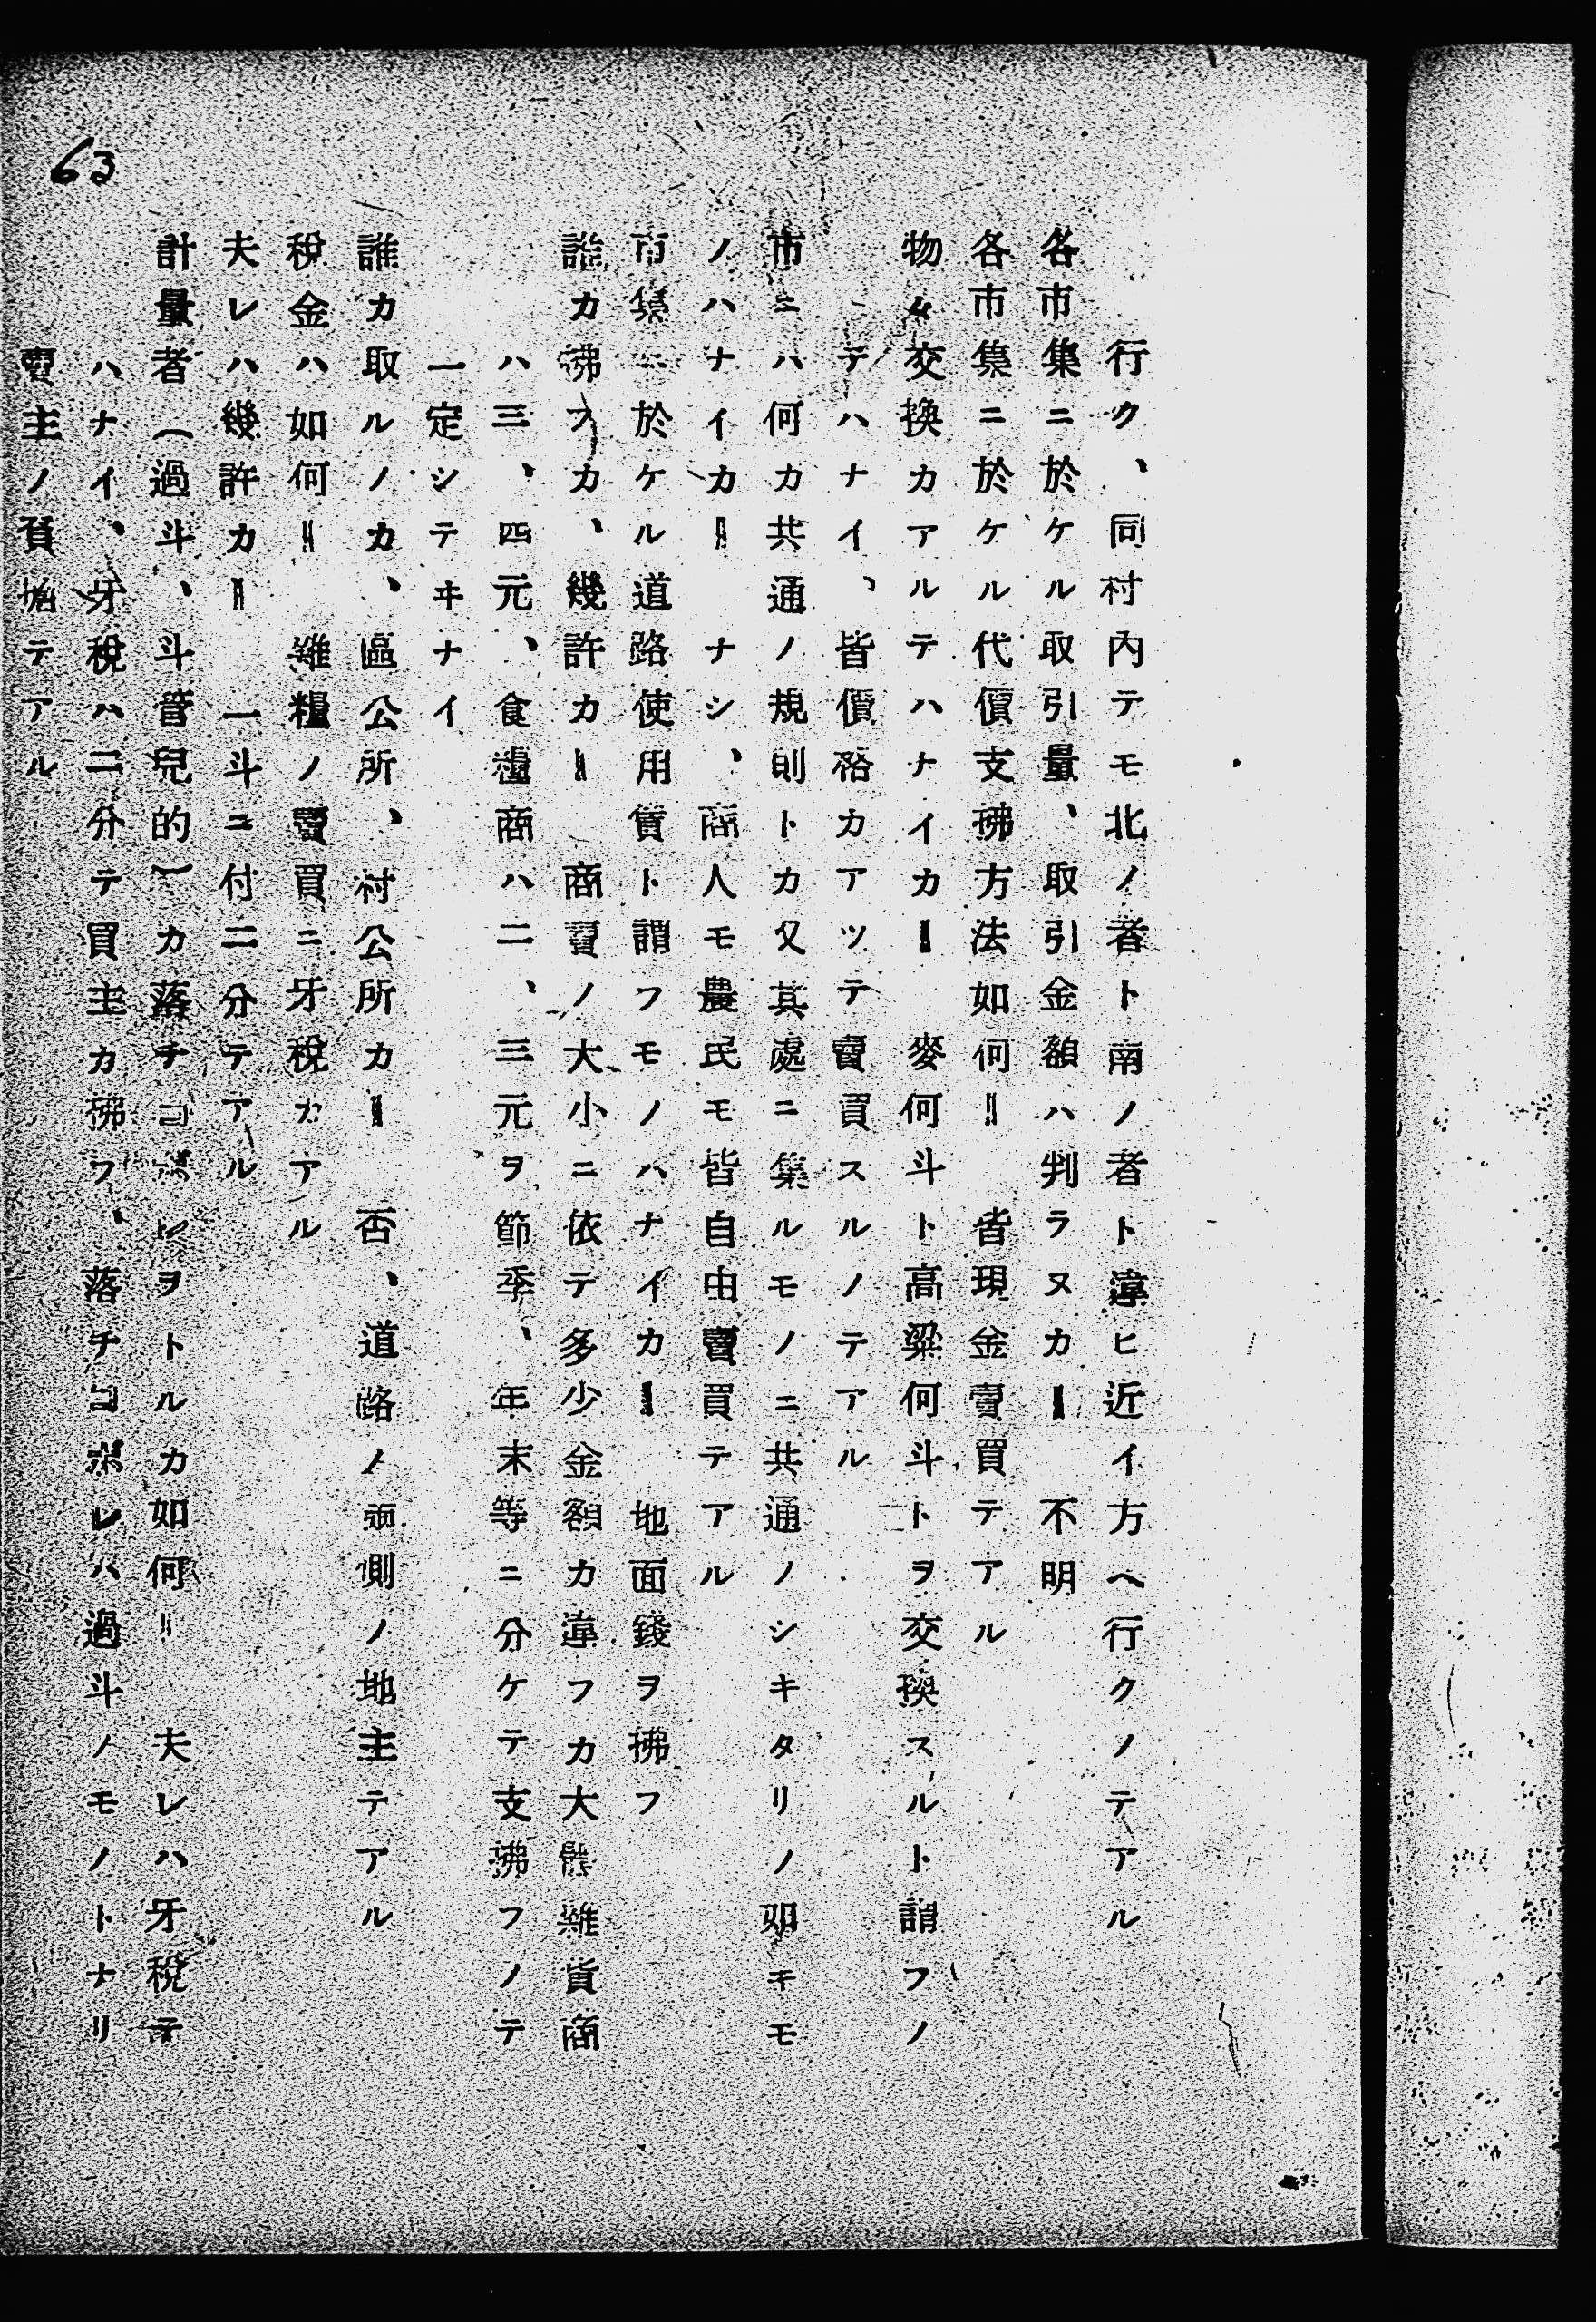 63
行ク、同村內テモ北ノ者ト南ノ者ト違ヒ近イ方へ行クノテアル
各市集ニ於ケル取引量、取引金額ハ判ラヌカ‖ 不明
各市集ニ於ケル代價支拂方法如何‖ 皆現金賣買テアル
物々交換カアルテハナイカ‖ 麥何斗ト高粱何斗トヲ交換スルト謂フノ
テハナイ、皆價格カアツテ賣買スルノテアル
市ニハ何カ共通ノ規則トカ又其處ニ集ルモノニ共通ノシキタリノ如キモ
ノハナイカ‖ ナシ、商人モ農民モ皆自由賣買テアル
市集ニ於ケル道路使用賃ト謂フモノハナイカ‖ 地面錢ヲ拂フ
誰カ拂フカ、幾許カ‖ 商賣ノ大小ニ依テ多少金額カ違フカ大體雜貨商
ハ三、四元、食糧商ハ二、三元ヲ節季、年末等ニ分ケテ支拂フノテ
一定シテヰナイ
誰カ取ルノカ、區公所、村公所カ‖ 否、道路ノ兩側ノ地主テアル
稅金ハ如何‖ 雜糧ノ賣買ニ牙稅カアル
夫レハ幾許カ‖ 一斗ニ付二分テアル
計量者(過斗、斗管兒的)カ落チコボレヲトルカ如何‖ 夫レハ牙稅テ
ハナイ、牙稅ハ二分テ買主カ拂フ、落チコボレハ過斗ノモノトナリ
賣主ノ負擔テアル